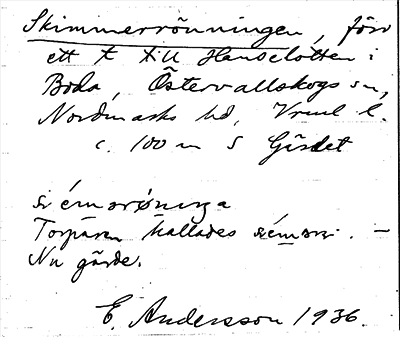 Skimmerrönningen, förr
ett t till Hanselotten i
Boda, Östervallskogs sn,
Nordmarks hd, Vrml l.
c. 100 m S Gärdet
Torparen kallades
Nu gärde.
E. Andersson 1936.